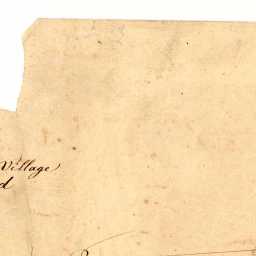 Village
d